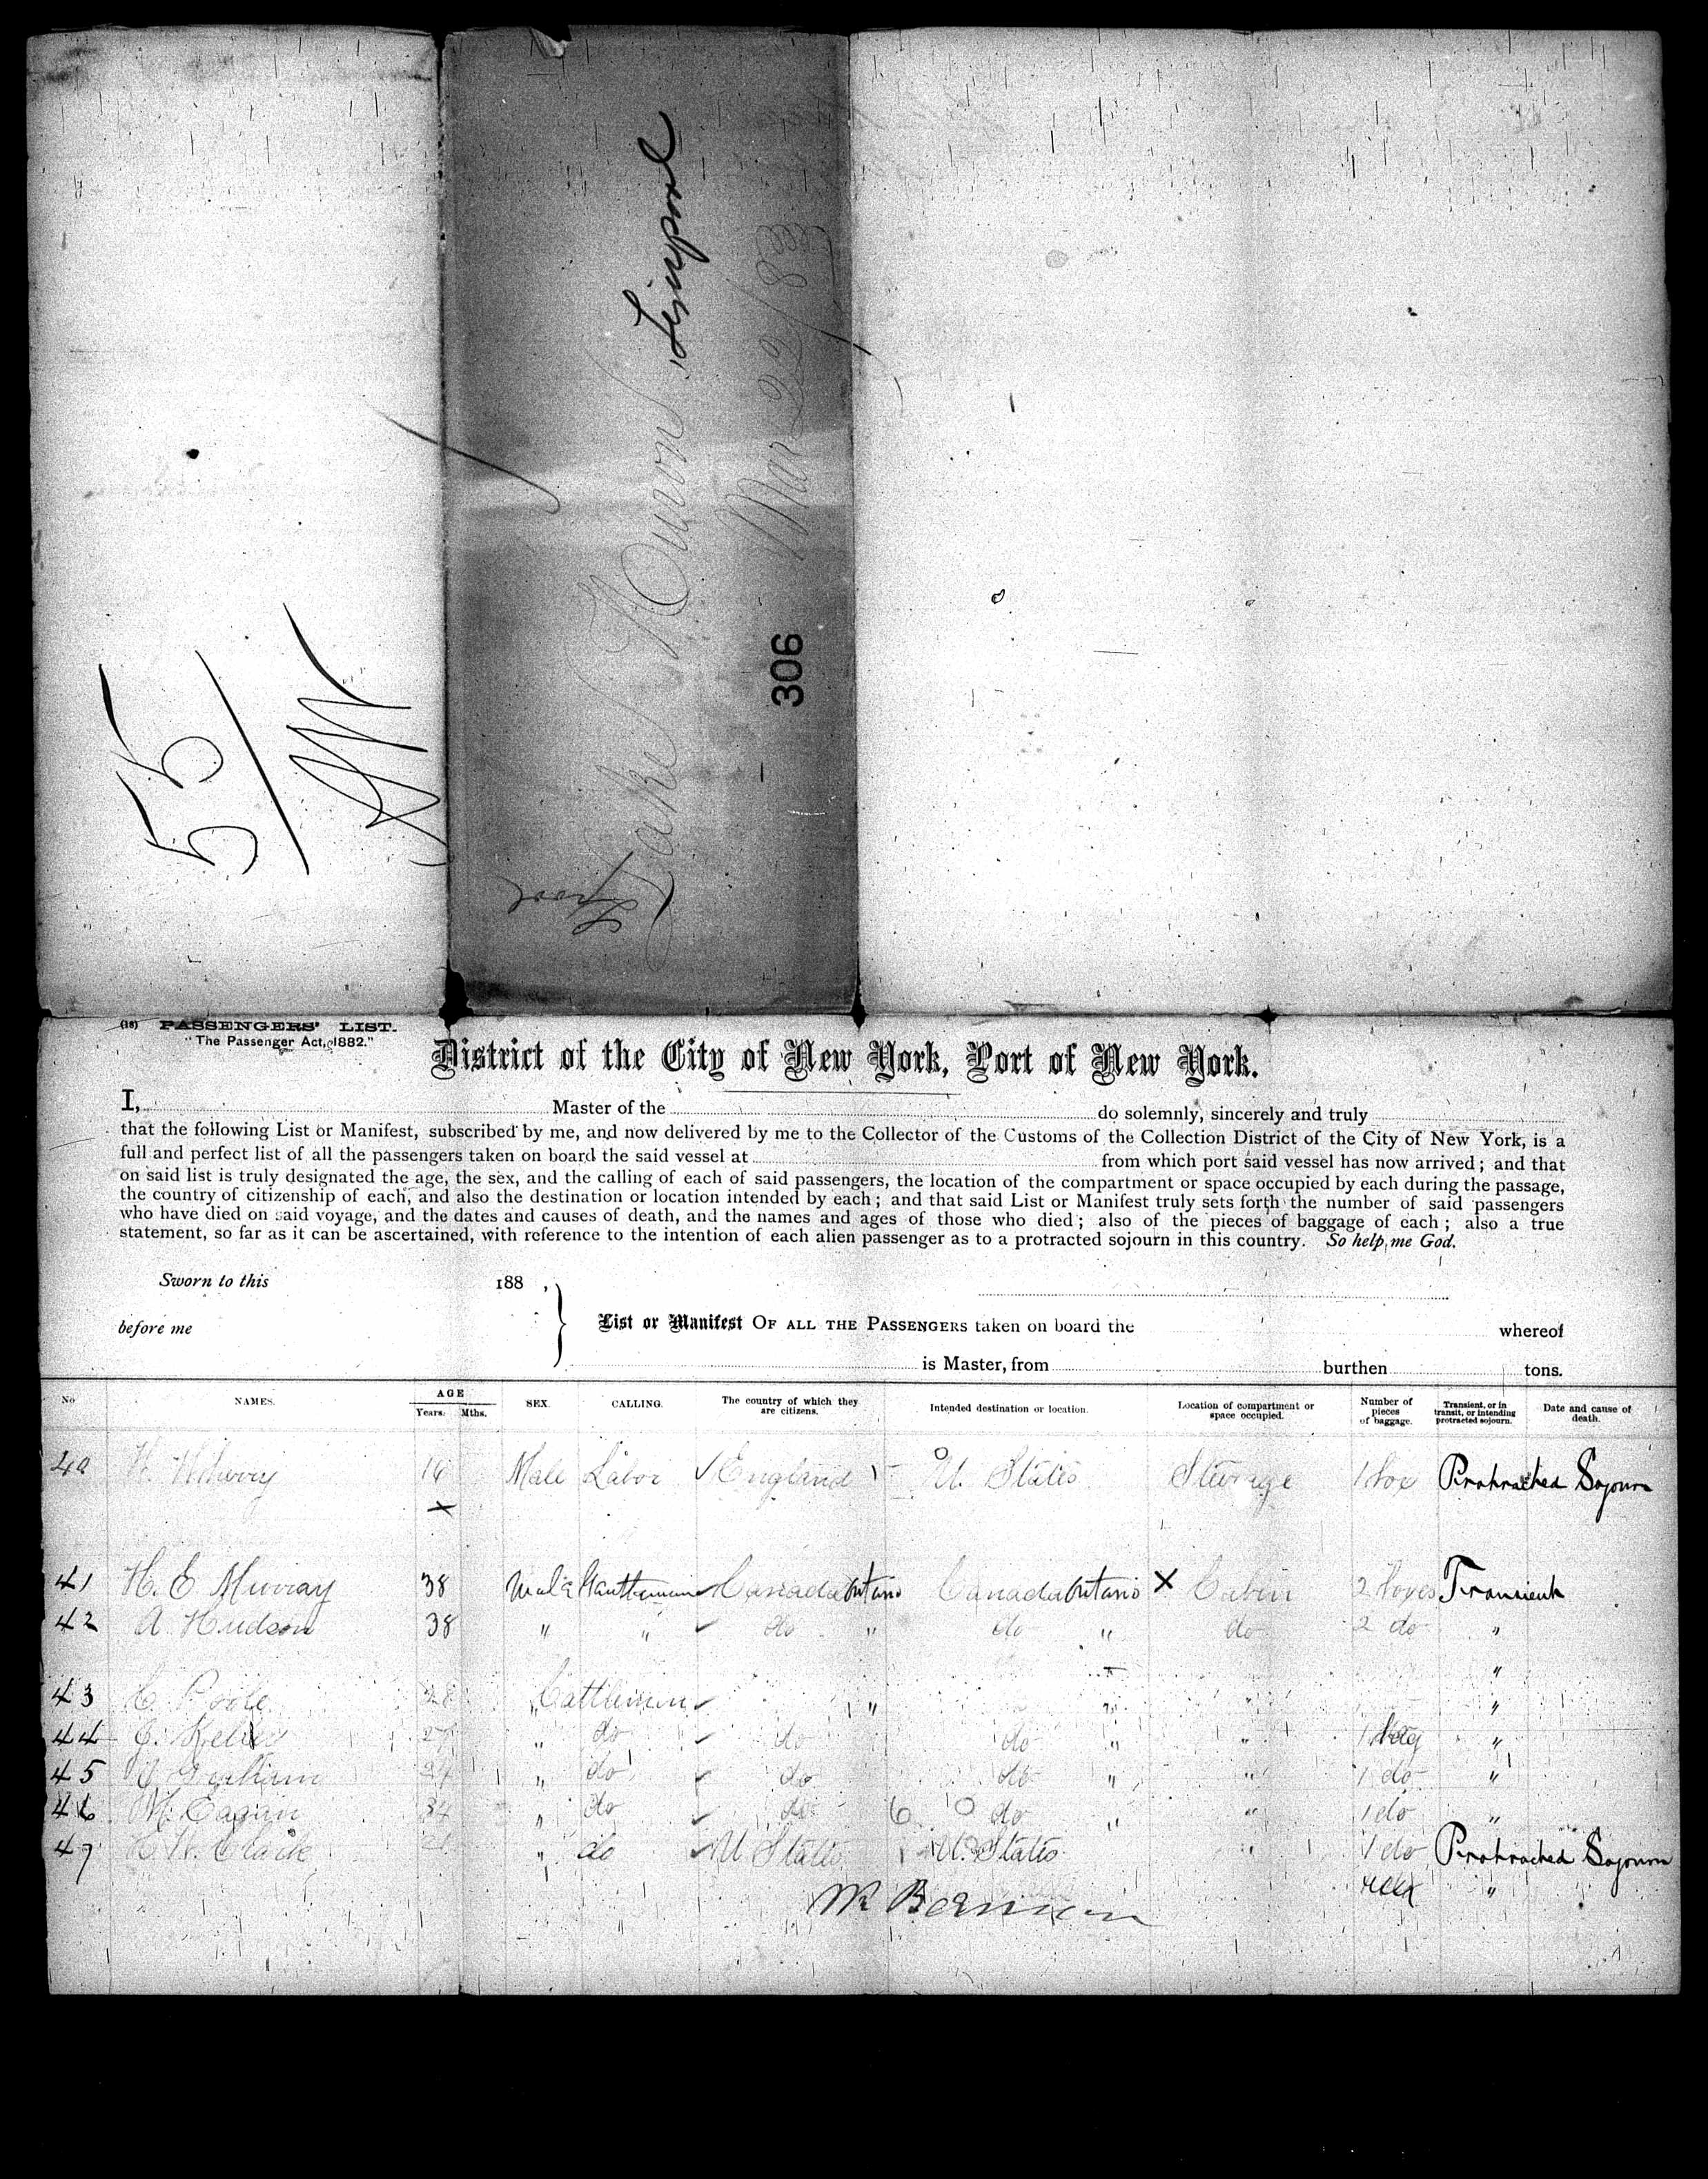 55/
Liverpool
Lake Huron
Mar 22/88
L'pool
306
(18) PASSENGERS' LIST.
"The Passenger Act, 1882."
District of the City of New York, Port of New York.
I, Master of the do solemnly, sincerely and truly
that the following List or Manifest, subscribed by me, and now delivered by me to the Collector of the Customs of the Collection District of the City of New York, is a
full and perfect list of all the passengers taken on board the said vessel at from which port said vessel has now arrived; and that
on said list is truly designated the age, the sex, and the calling of each of said passengers, the location of the compartment or space occupied by each during the passage,
the country of citizenship of each, and also the destination or location intended by each; and that said List or Manifest truly sets forth the number of said passengers
who have died on said voyage, and the dates and causes of death, and the names and ages of those who died; also of the pieces of baggage of each; also a true
statement, so far as it can be ascertained, with reference to the intention of each alien passenger as to a protracted sojourn in this country. So help me God.
Sworn to this 188 ,
before me
List or Manifest OF ALL THE PASSENGERS taken on board the whereof
is Master, from burthen tons.
No NAMES. AGE Years. Mths. SEX. CALLING. The country of which they are citizens. Intended destination or location. Location of compartment or space occupied. Number of pieces of baggage. Transient, or in transit, or intending protracted sojourn. Date and cause of death.
40 Male Labor England U. States Steerage 1 Box Protracted Sojourn
41 H. E. Murray 38 Male Canada Ontario Canada Ontario X Cabin 2 Boxes Transient
42 A Hudson 38 " " do " do " do 2 do "
43 C. Poole 28 " Cattleman " " " "
44 27 " do do do " " 1 Bag "
45 " do do do " " 1 do "
46 M. Eagan 34 " do do do " " 1 do "
47 Clark " do U States U. States " 1 do Protracted Sojourn
"